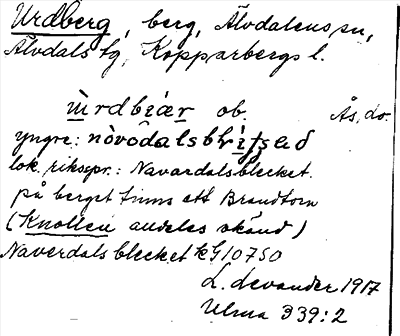 Urdberg, berg, Älvdalens sn,
Älvdals tg, Kopparbergs l.
ùrdbiær ob. Ås, do.
yngre: nòvodalsblitsəd
lok. rikspr.: Navardalsblecket.
på berget finns ett Brandtorn
(Knollen andeles okänd)
Naverdalsblecket kG10750
L. Levander 1917
Ulma 339:2